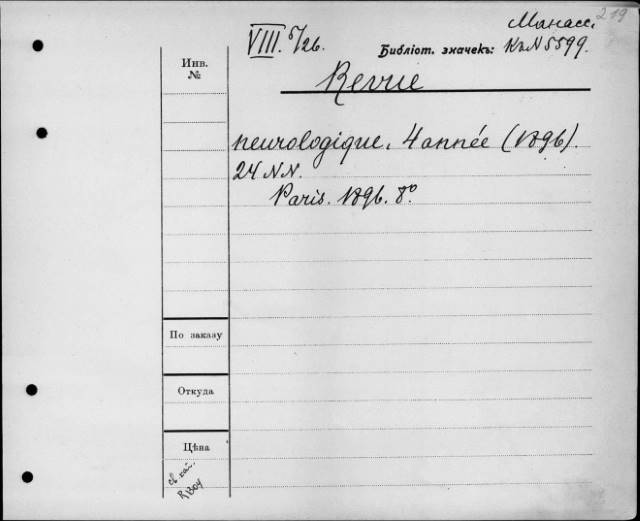 219
Минасс.
VIII. 5/26.
Библіот. значекъ: Къ N 5599.
Инв.
№
Revue
neurologique, 4 année (1896).
24 NN.
Paris. 1896. 8°.
По заказу
Откуда
Цѣна